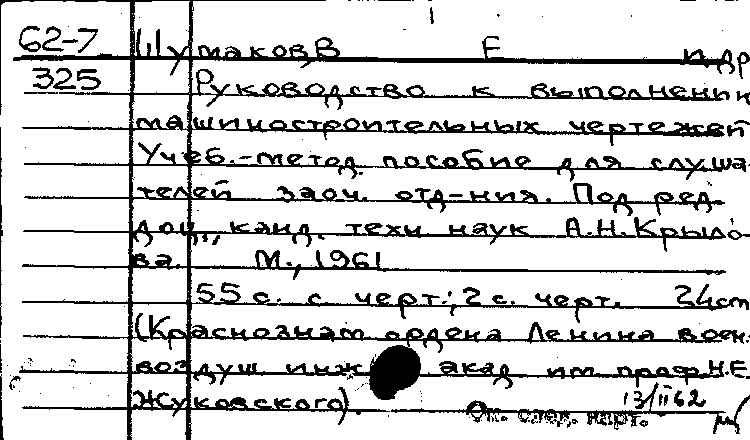 62-7 Шумаков, В Е и др
325 Руководство к выполнении
машиностроительных чертежей
Учеб.-метод. пособие для слуша
телей заоч. отд-ния. Под ред.
доц., канд. техн наук А.Н.Крыло-
ва. М., 1961
55 с. с черт.; 2 с. черт. 24см
(Краснознам ордена Ленина воен.
воздуш инж акад им проф.Н.Е
Жуковского).
13/II 62
Ок. след. карт.